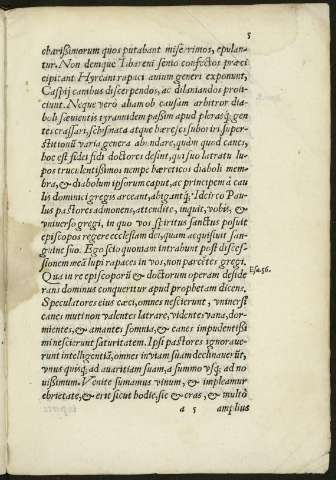 5
charissimorum quos putabant miserrimos, epulan-
tur. Non denique Tibareni senio confectos præci
cipitant Hyrcani rapaci auium generi exponunt,
Caspij canibus discerpendos, ac dilaniandos proii-
ciunt. Neque verò aliam ob causam arbitror diaboli
sæuientis tyrannidem passim apud plerasq; gen-
tes crassari, schismata atque hæreses suboriri, super-
stitionū varia genera abundare, quàm quod canes,
hoc est fidei fidi doctores desint, qui suo latratu lu-
pos truculentissimos nempe hæreticos diaboli mem-
bra, & diabolum ipsorum caput, ac principem à cau
lis dominici gregis arceant, abigantq;. Idcirco Pau-
lus pastores admonens, attendite, inquit, vobis, &
vniuerso gregi, in quo vos spiritus sanctus posuit
episcopos regere ecclesiam dei, quam acquisiuit san-
guine suo. Ego scio quoniam intrabunt post discess-
sionem meā lupi rapaces in vos, non parcētes gregi.
Qua in re episcoporū & doctorum operam deside
Esa.56.
rans dominus conqueritur apud prophetam dicens.
Speculatores eius cæci, omnes nescierunt, vniuersi
canes muti non valentes latrare, videntes vana, dor-
mientes, & amantes somnia, & canes impudentissi
mi nescierunt saturitatem. Ipsi pastores ignoraue-
runt intelligentiā, omnes in viam suam declinauerūt,
vnus quisq; ad auaritiam suam, a summo vsq; ad no
uissimum. Venite sumamus vinum, & impleamur
ebrietate, & erit sicut hodie, sic & cras, & multò
a 5 amplius